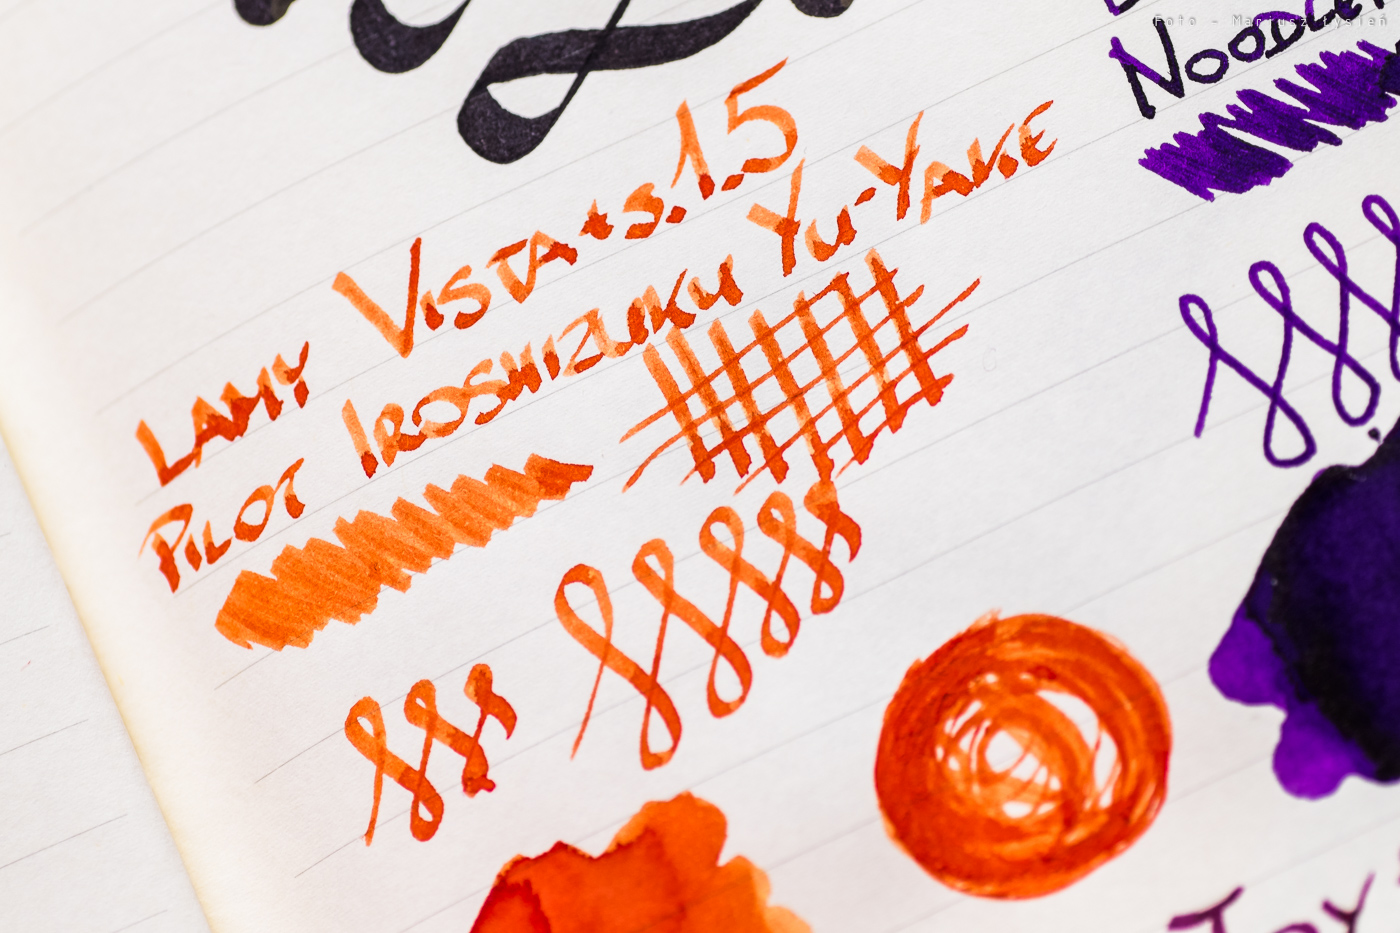 Foto - Mariusz Tysień
LAMY VISTA s.1.5
PILOT IROSHIZUKU YU-YAKE